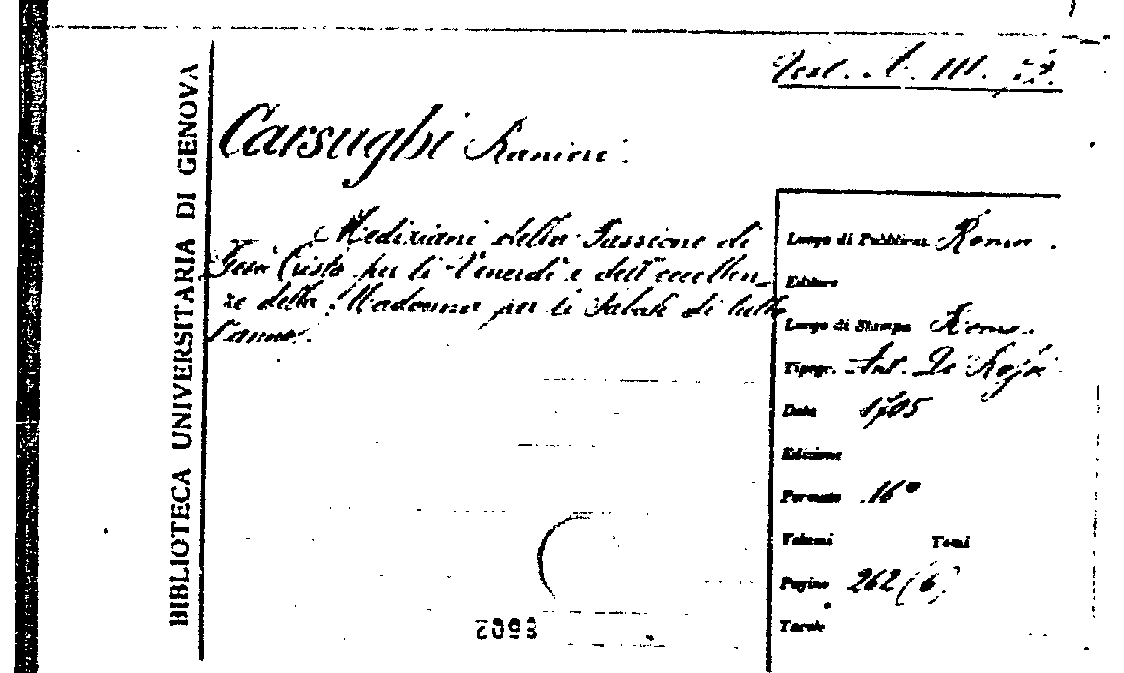 BIBLIOTECA UNIVERSITARIA DI GENOVA
Carsughi Ranieri.
Meditazioni della Passione di
Gesù Cristo per li Venerdì e dell'eccellen-
ze della Madonna per li Sabati di tutto
l'anno.
Luogo di Pubblicaz. Roma.
Editore
Luogo di Stampa Roma.
Tipogr. Ant. De Rossi
Data 1705
Edizione
Formato 16°
Volumi Tomi
Pagine 262 (6)
Tavole